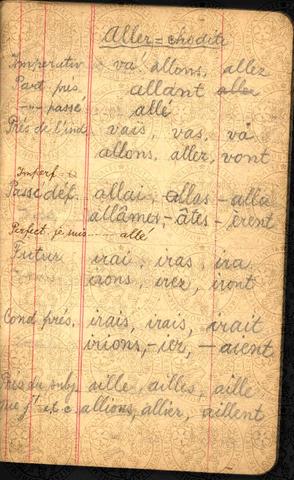 Aller = choditi
Imperativ - va! allons, allez
Part. prés. allant
" " passé allé
Prés de l'ind. vais, vas, va
allons, allez, vont
Imperf
Passé déf. allai, allas - alla
allâmes, - âtes - èrent
Perfect. je suis allé
Futur irai, iras, ira
irons, irez, iront
Cond. prés. irais, irais, irait
irions, - iez, - aient
Prés du subj. aille, ailles, aille
que j' allions, alliez, aillent